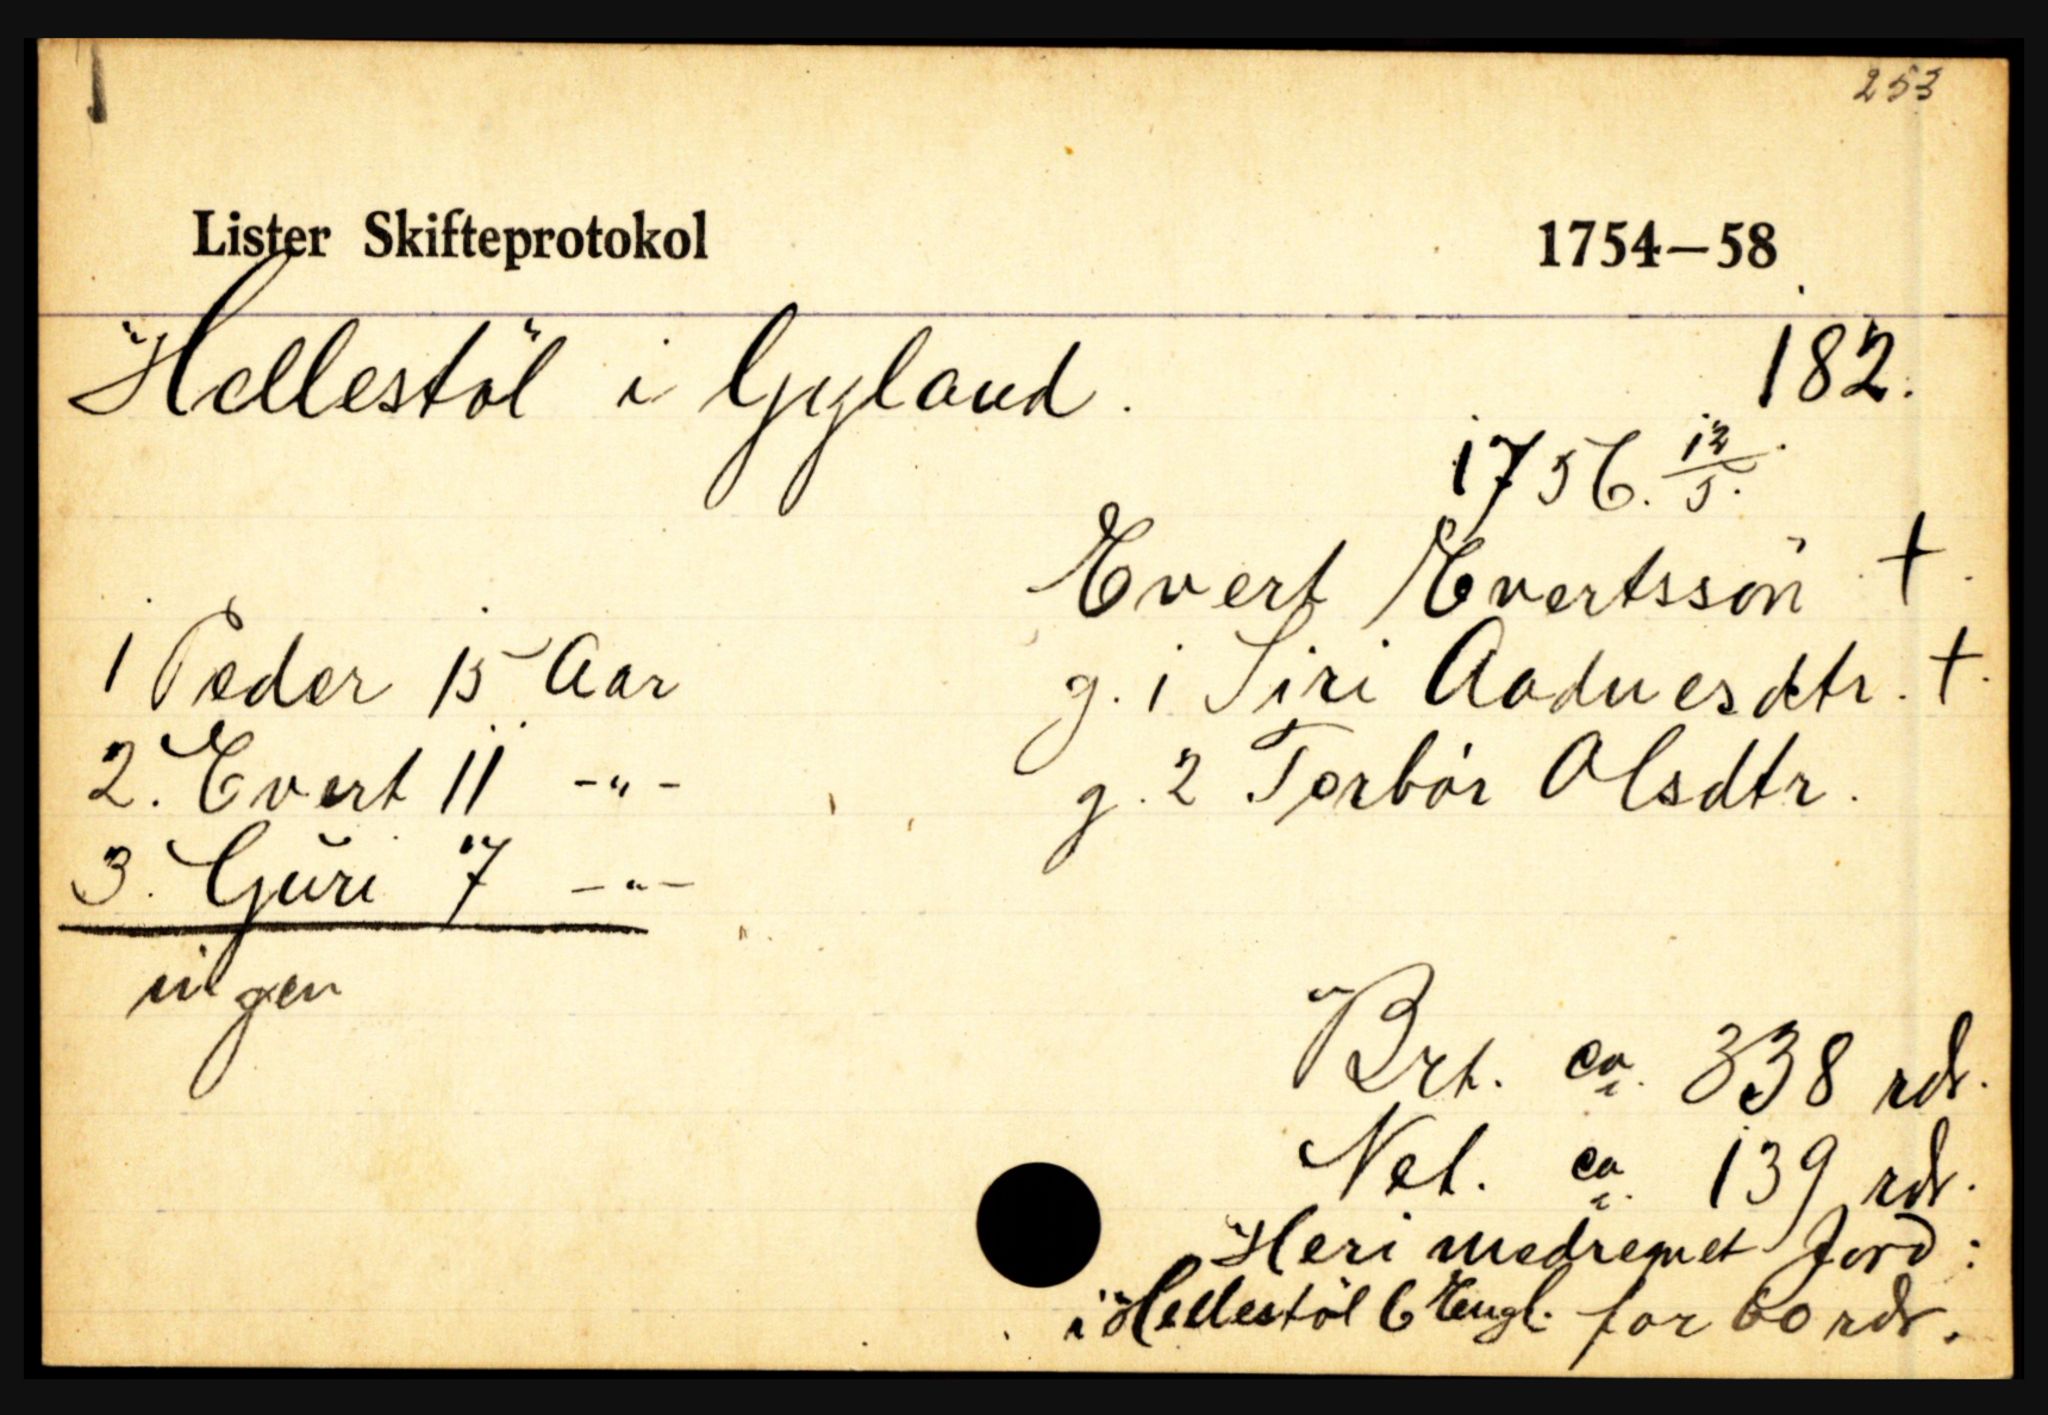 253
Lister Skifteprotokol 1754–58
Hellestöl i Gyland. 182.
1756. 12/5.
Evert Evertssön +.
1 Peder 15 Aar g. 1 Siri Aadnesdtr. +.
2. Evert 11 -"- g. 2 Torbör Olsdtr.
3. Guri 7 -"-
ingen
Brt. ca. 338 rdr.
Net. ca. 139 rdr.
Heri medregnet Jord:
i Hellestöl 6 Engl. for 60 rdr.